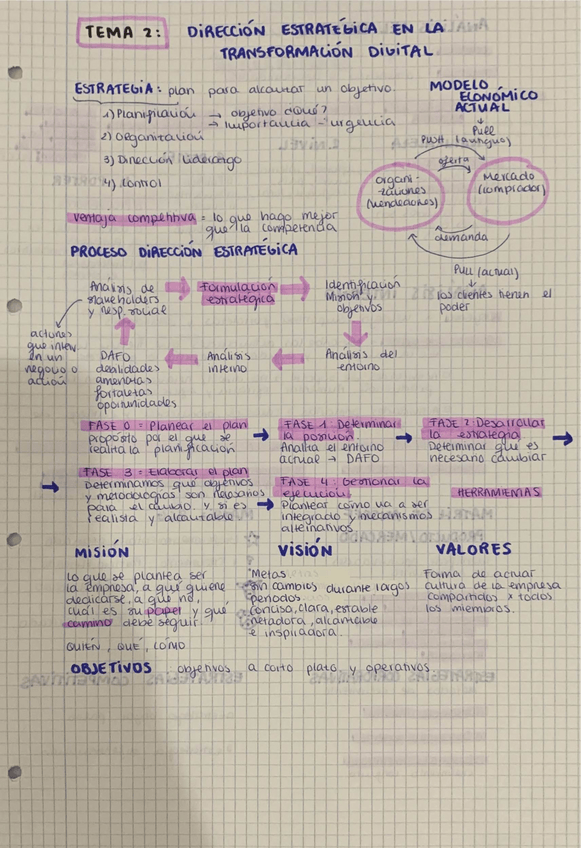 TEMA 2: DIRECCIÓN ESTRATÉGICA EN LA
TRANSFORMACIÓN DIGITAL
ESTRATEGIA: plan para alcanzar un objetivo.
1) Planificación → objetivo ¿Qué?
→ importancia - urgencia
2) Organización
3) Dirección Liderazgo
4) Control
Ventaja competitiva = lo que hago mejor
que la competencia
MODELO
ECONÓMICO
ACTUAL
Pull
PUSH (antiguo)
oferta
organi-
zaciones
(vendedores)
Mercado
(comprador)
demanda
PULL (actual)
los clientes tienen el
poder
PROCESO DIRECCIÓN ESTRATÉGICA
Análisis de
stakeholders
y resp. social
Formulación
estratégica
Identificación
Misión y
objetivos
actores
que interv.
en un
negocio o
acción
DAFO
debilidades
amenazas
fortalezas
oportunidades
Análisis
interno
Análisis del
entorno
FASE 0 = Planear el plan
propósito por el que se
realiza la planificación
FASE 1: Determinar
la posición.
Analiza el entorno
actual → DAFO
FASE 2: Desarrollar
la estrategia
Determinar que es
necesario cambiar
FASE 3 = Elaborar el plan
Determinamos qué objetivos
y metodologías son necesarios
para el cambio. y si es
realista y alcanzable
FASE 4: Gestionar la
ejecución
Plantear cómo va a ser
integrado y mecanismos
alternativos
HERRAMIENTAS
MISIÓN
lo que se plantea ser
la empresa, a qué quiere
dedicarse, a que no,
cuál es su papel y qué
camino debe seguir.
QUIÉN, QUÉ, CÓMO
VISIÓN
Metas
sin cambios durante largos
periodos.
concisa, clara, estable
retadora, alcanzable
e inspiradora.
VALORES
Forma de actuar
cultura de la empresa
compartidos x todos
los miembros.
OBJETIVOS objetivos a corto plazo y operativos